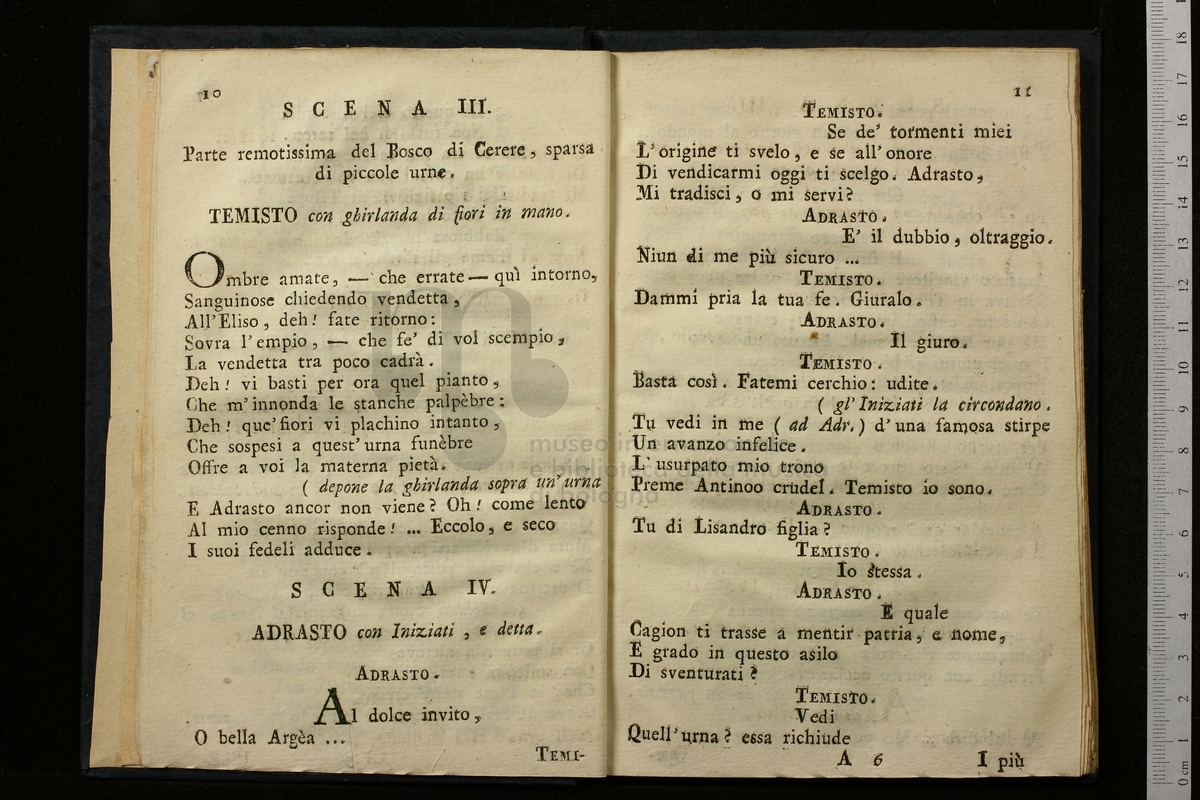 10
SCENA III.
Parte remotissima del Bosco di Cerere, sparsa
di piccole urne.
TEMISTO con ghirlanda di fiori in mano.
Ombre amate, — che errate — quì intorno,
Sanguinose chiedendo vendetta,
All'Eliso, deh! fate ritorno:
Sovra l'empio, — che fe' di voi scempio,
La vendetta tra poco cadrà.
Deh! vi basti per ora quel pianto,
Che m'innonda le stanche palpèbre:
Deh! que' fiori vi plachino intanto,
Che sospesi a quest'urna funèbre
Offre a voi la materna pietà.
( depone la ghirlanda sopra un'urna
E Adrasto ancor non viene? Oh! come lento
Al mio cenno risponde! ... Eccolo, e seco
I suoi fedeli adduce.
SCENA IV.
ADRASTO con Iniziati, e detta.
ADRASTO.
Al dolce invito,
O bella Argèa ...
TEMI-
11
TEMISTO.
Se de' tormenti miei
L'origine ti svelo, e se all'onore
Di vendicarmi oggi ti scelgo. Adrasto,
Mi tradisci, o mi servi?
ADRASTO.
E' il dubbio, oltraggio.
Niun di me più sicuro ...
TEMISTO.
Dammi pria la tua fe. Giuralo.
ADRASTO.
Il giuro.
TEMISTO.
Basta così. Fatemi cerchio: udite.
( gl'Iniziati la circondano.
Tu vedi in me ( ad Adr. ) d'una famosa stirpe
Un avanzo infelice.
L'usurpato mio trono
Preme Antinoo crudel. Temisto io sono.
ADRASTO.
Tu di Lisandro figlia?
TEMISTO.
Io stessa.
ADRASTO.
E quale
Cagion ti trasse a mentir patria, e nome,
E grado in questo asilo
Di sventurati?
TEMISTO.
Vedi
Quell'urna? essa richiude
A 6
I più